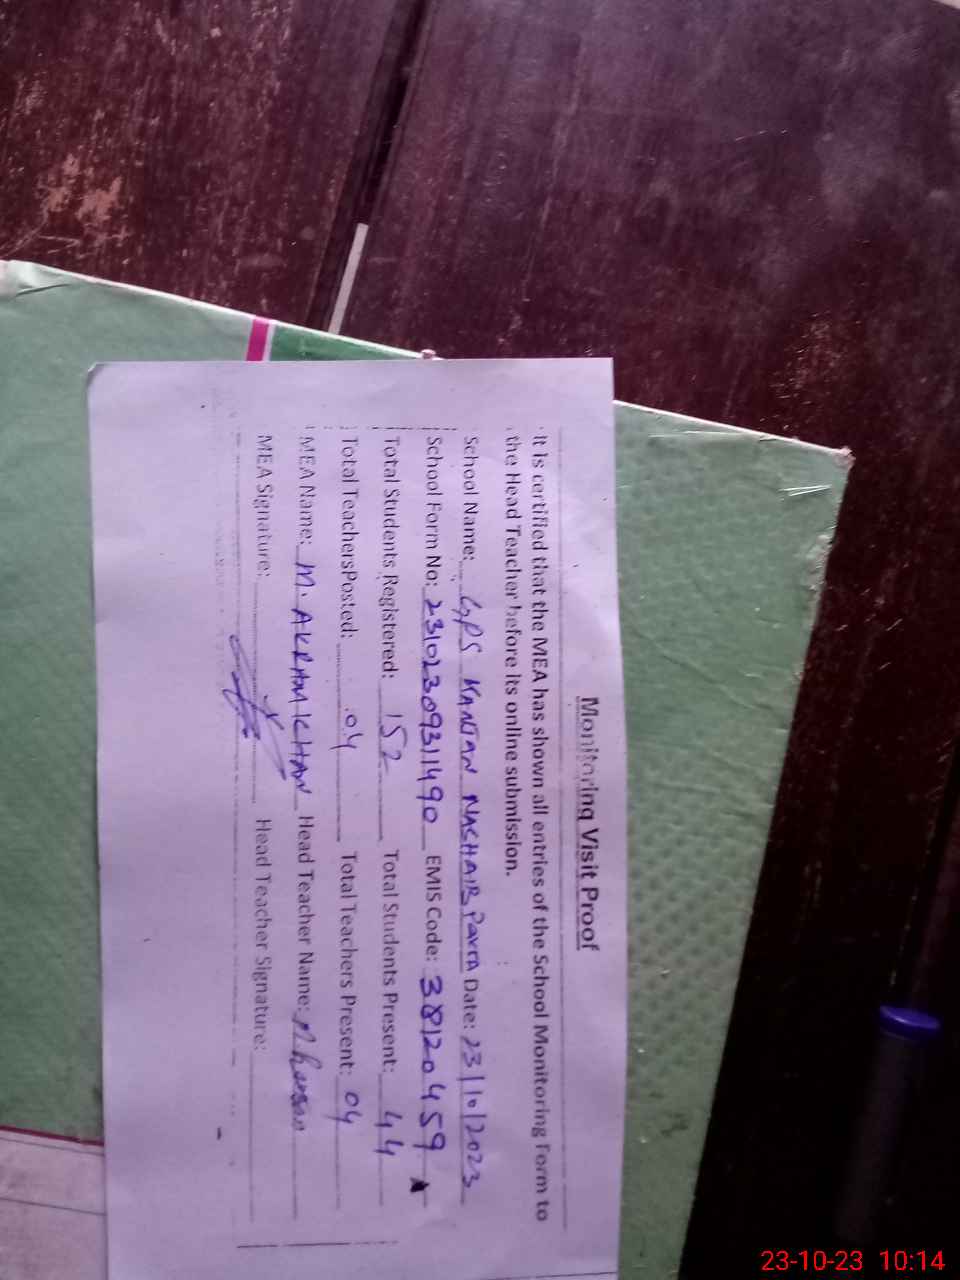 Monitoring Visit Proof
It is certified that the MEA has shown all entries of the School Monitoring Form to
the Head Teacher before its online submission.
School Name: GPS KANJAN NASHAIB Date: 23/10/2023
School Form No: 2310230931490 EMIS Code: 38120459
Total Students Registered: 152 Total Students Present: 44
Total TeachersPosted: 04 Total Teachers Present: 04
MEA Name: M. AKRAM KHAN Head Teacher Name:
MEA Signature: Head Teacher Signature:
23-10-23 10:14